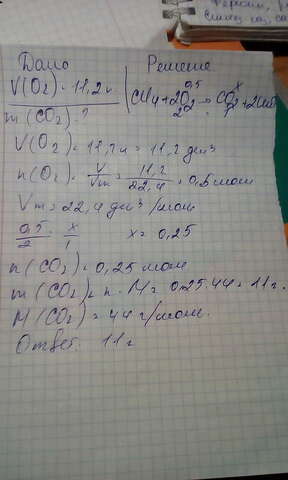 Дано Решение
V(O₂) = 11,2 л
m(CO₂) - ?
0,5 x
CH₄ + 2O₂ = CO₂ + 2H₂O
2 1
V(O₂) = 11,2 л = 11,2 дм³
n(O₂) = V/Vm = 11,2/22,4 = 0,5 моль
Vm = 22,4 дм³/моль
0,5/2 = x/1 x = 0,25
n(CO₂) = 0,25 моль
m(CO₂) = n · M = 0,25·44 = 11 г.
M(CO₂) = 44 г/моль.
Ответ: 11 г